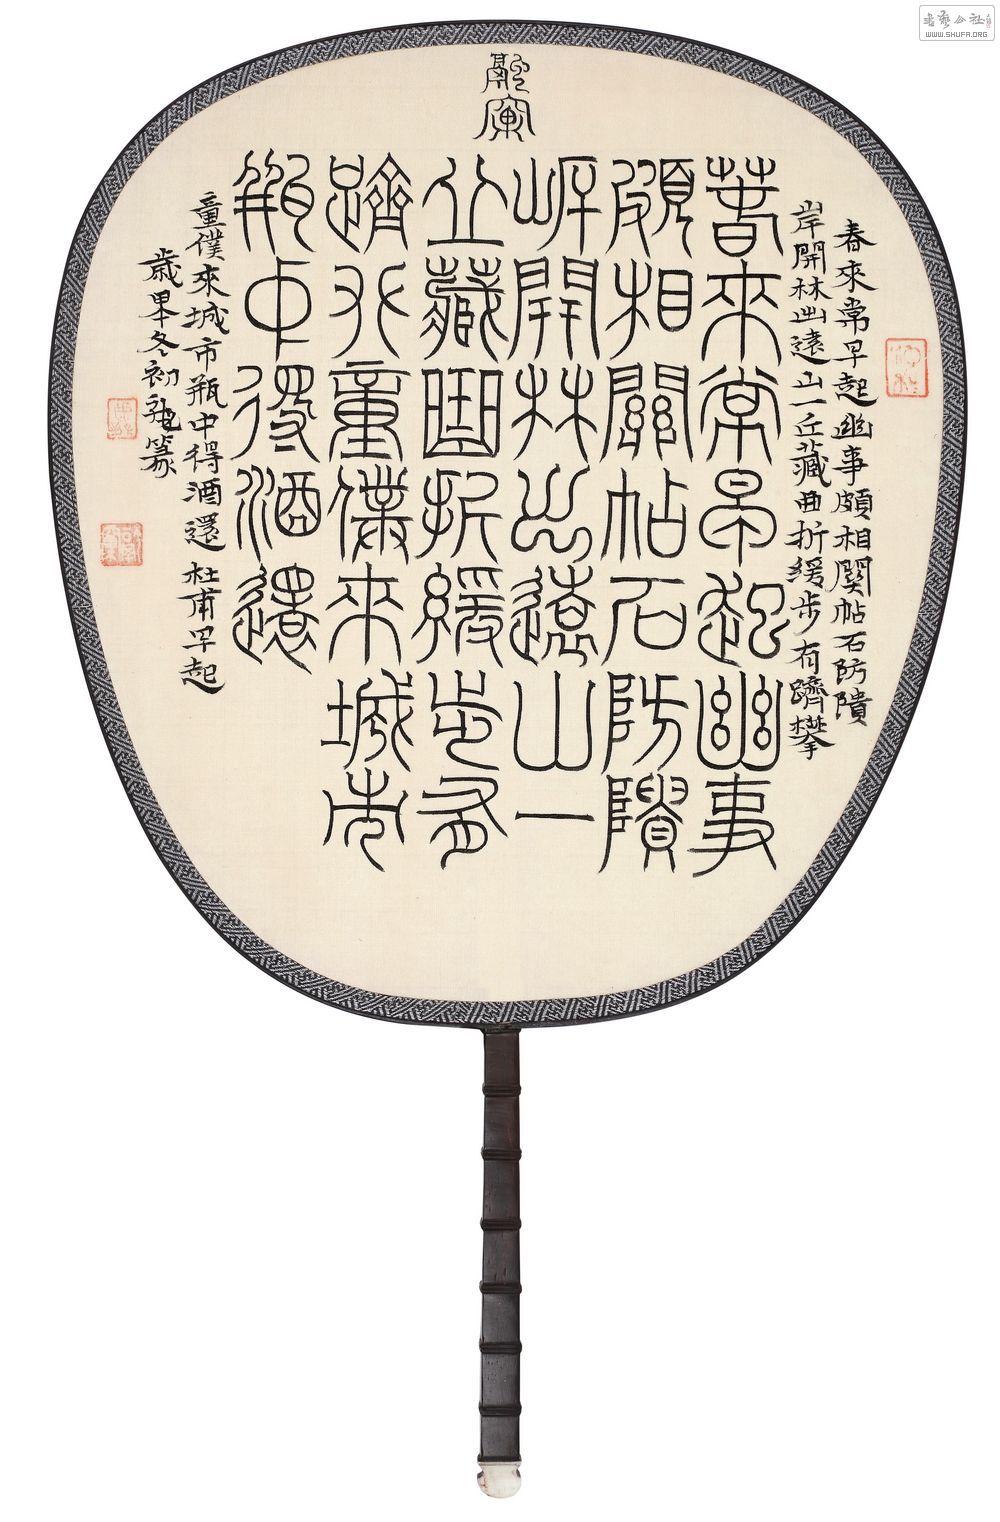 春來常早起幽事頗相關帖石防隤
岸開林出遠山一丘藏曲折緩步有躋攀
春來常早起幽事
頗相關帖石防隤
岸開林出遠山一
丘藏曲折緩步有
躋攀童僕來城市
瓶中得酒還
童僕來城市瓶中得酒還 杜甫早起
歲 冬初 篆
書藝公社
WWW.SHUFA.ORG